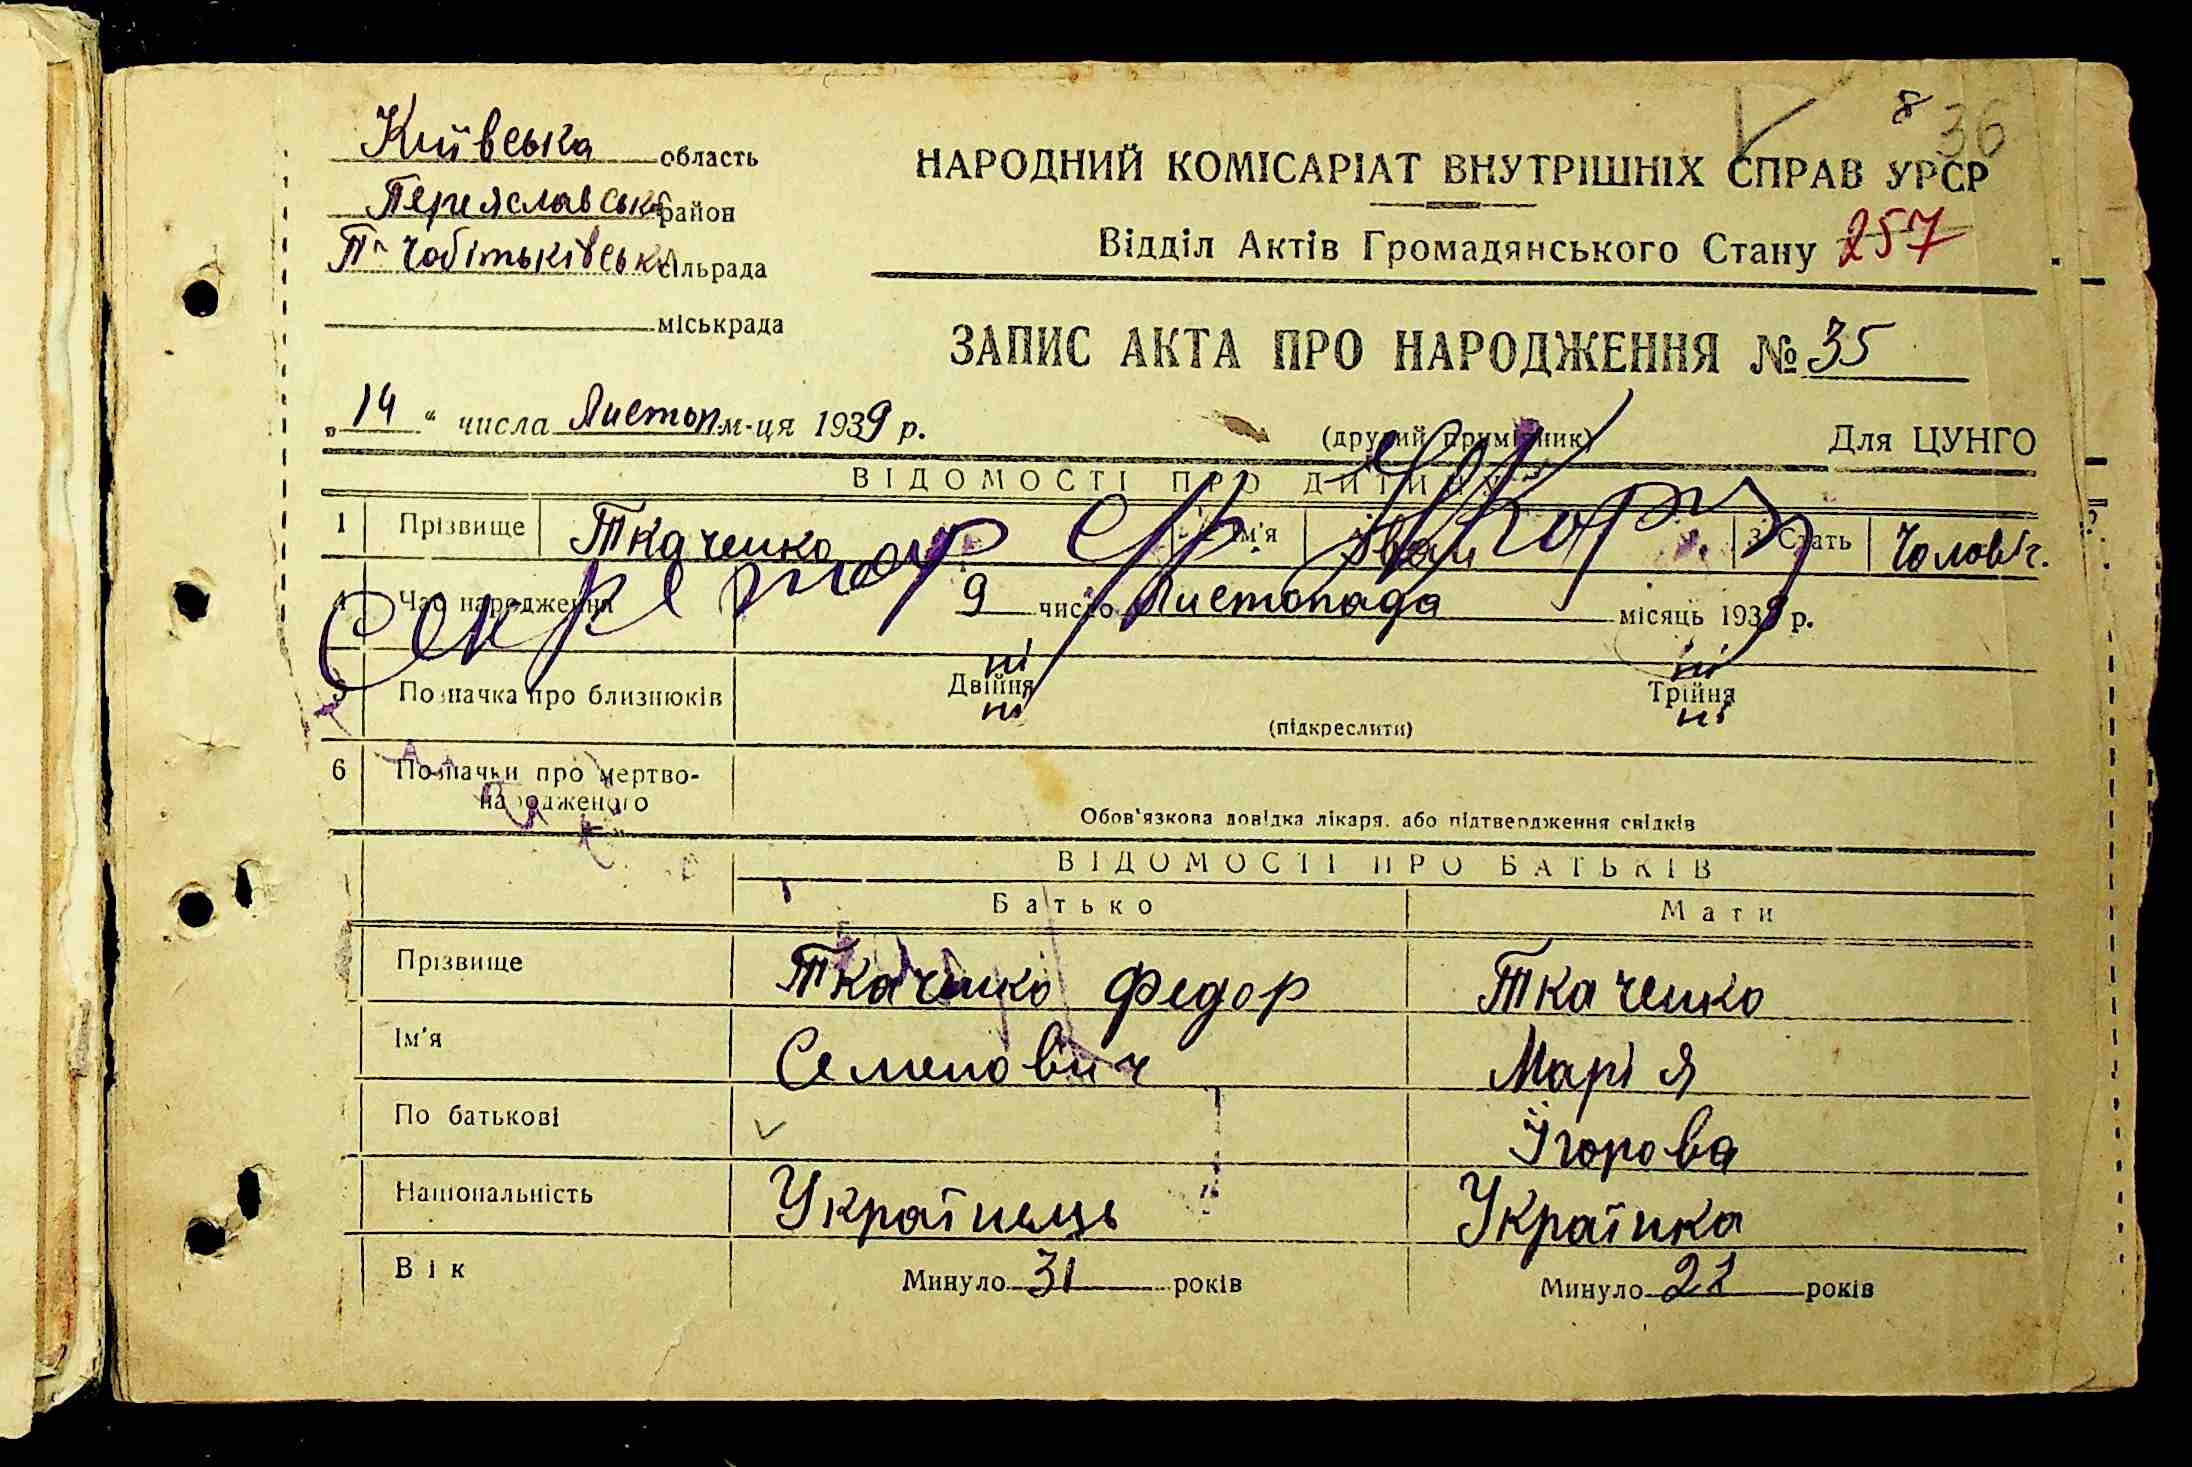 8 36
Київська область
НАРОДНИЙ КОМІСАРІАТ ВНУТРІШНІХ СПРАВ УРСР
Переяславськ район
Відділ Актів Громадянського Стану 257
П- Чобітьківськ сільрада
міськрада
ЗАПИС АКТА ПРО НАРОДЖЕННЯ № 35
„14“ числа Листоп м-ця 1939 р.
(другий примірник)
Для ЦУНГО
ВІДОМОСТІ ПРО ДИТИНУ
1 Прізвище Ткаченко 2 Ім'я Іван 3 Стать Чоловіч.
Секретар
4 Час народження 9 число Листопада місяць 1939 р.
ні ні
5 Позначка про близнюків Двійня Трійня
ні ні
(підкреслити)
6 Позначки про мертво-
народженого
Обов'язкова довідка лікаря, або підтвердження свідків
ВІДОМОСТІ ПРО БАТЬКІВ
Батько Мати
Прізвище Ткаченко Федор Ткаченко
Ім'я Семенович Марія
По батькові Ігорова
Національність Українець Українка
Вік Минуло 31 років Минуло 21 років